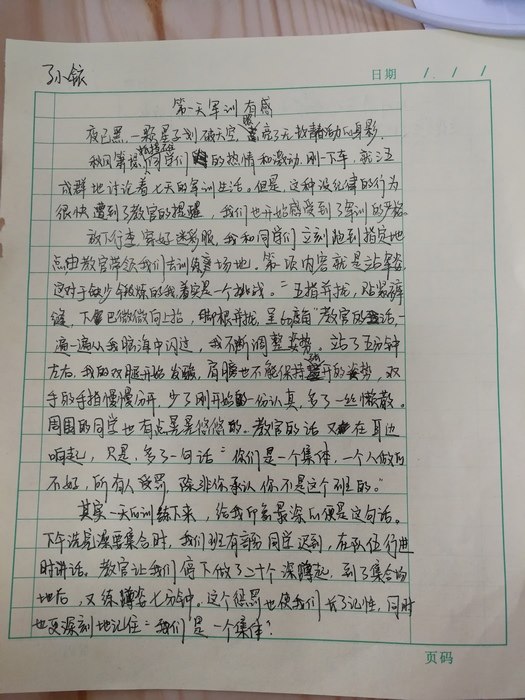 日期 / . / /
第一天军训有感
夜已黑,一颗星子划破天空,照亮了无数静动的身影。
秋风席卷,同学们的热情和激动。刚下车,就三五
成群地讨论着七天的军训生活。但是,这种没纪律的行为
很快遭到了教官的提醒,我们也开始感受到了军训的严格。
放下行李,穿好迷彩服,我和同学们立刻跑到指定地
点由教官带领我们去训练场地。第一项内容就是站军姿
这对于缺少锻炼的我着实是一个挑战。“五指并拢,贴紧裤
缝,下巴微微向上抬,脚根并拢,呈60度角”教官的话,一
遍一遍从我脑海中闪过,我不断调整姿势。站了五分钟
左右,我的双腿开始发酸,肩膀也不能保持开的姿势,双
手的手指慢慢分开,少了刚开始的一份认真,多了一丝懒散。
周围的同学也有点晃晃悠悠的。教官的话又在耳边
响起,只是,多了一句话“你们是一个集体,一个人做的
不好,所有人受罚,除非你承认你不是这个班的。”
其实一天的训练下来,给我印象最深的便是这句话。
下午洗完澡要集合时,我们班有部分同学迟到,在队伍行进
时讲话。教官让我们停下做了二十个深蹲起,到了集合场
地后,又练蹲姿七分钟。这个惩罚也使我们长了记性,同时
也更深刻地记住“我们是一个集体”
页码